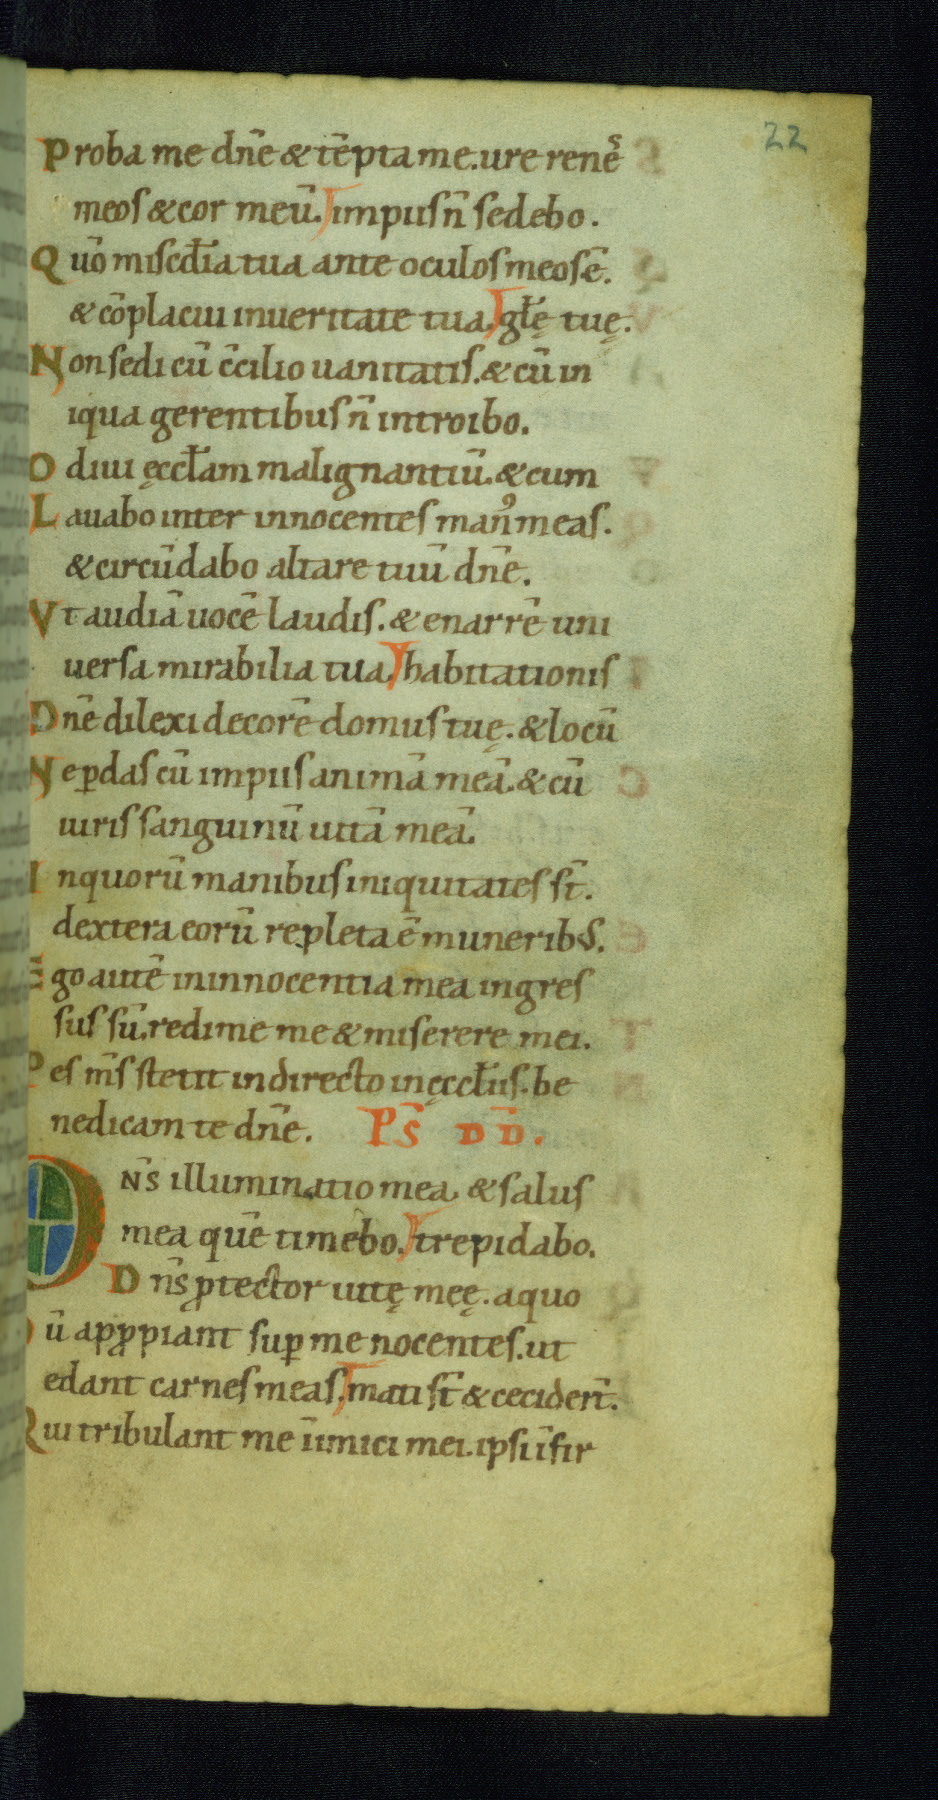 22
Proba me dn̄e & tēpta me. ure renēs
meos & cor meū. impiis n̄ sedebo.
Quō misc̄dia tua ante oculos meos ē.
& cōplacui in ueritate tua. gl̄ę tuę.
Non sedi cū c̄cilio uanitatis. & cū in
iqua gerentibus n̄ introibo.
Odiui ęccl̄am malignantiū. & cum
Lauabo inter innocentes man᾿ meas.
& circūdabo altare tuū dn̄e.
Vt audiā uocē laudis. & enarrē uni
uersa mirabilia tua. habitationis
Dn̄e dilexi decorē domus tuę. & locū
Ne ꝑdas cū impiis animā meā. & cū
uiris sanguinū uitā meā.
In quorū manibus iniquitates st̄.
dextera eorū repleta ē muneribs.
Ego autē in innocentia mea ingres
sus sū. redime me & miserere mei.
Pes m̄s stetit in directo in ęccl̄iis. be
nedicam te dn̄e. PS̄ DD̄.
DN̄S illuminatio mea & salus
mea quē timebo. trepidabo.
Dn̄s ꝓtector uitę meę. a quo
Dū apꝓpiant suꝑ me nocentes. ut
edant carnes meas. mati st̄ & cecider̄t.
Qui tribulant me īimici mei. ipsi īfir